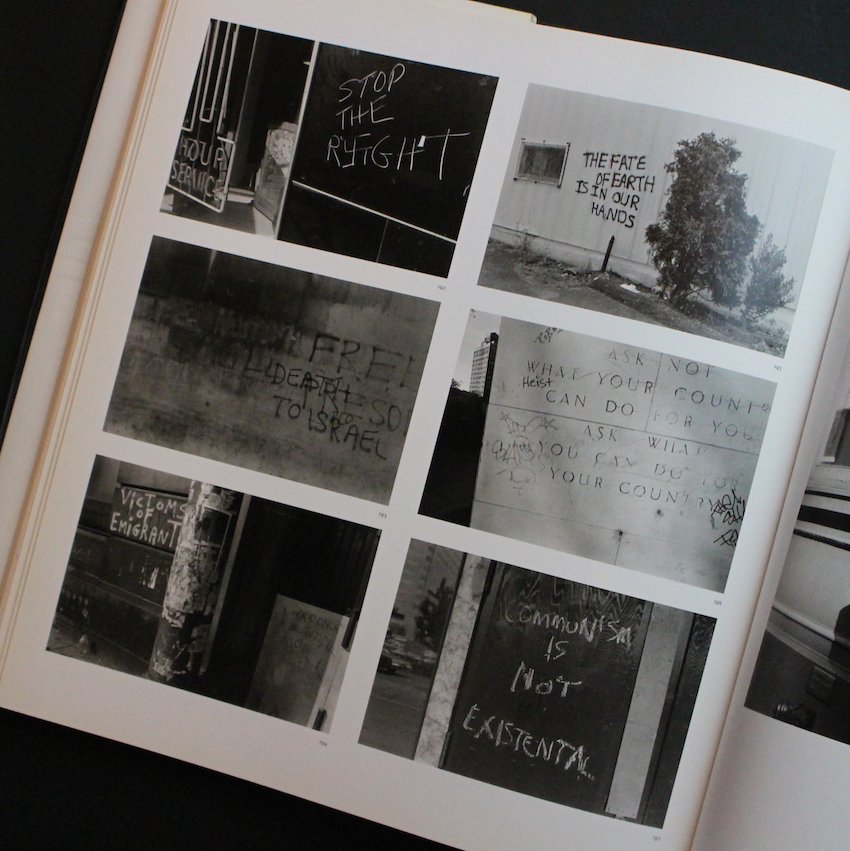 HOUR
SERVICE
STOP
THE
RIGHT
THE FATE
OF EARTH
IS IN OUR
HANDS
FREE
DEATH
TO ISRAEL
ASK NOT
WHAT YOUR COUNTR
Heist
CAN DO FOR YOU
ASK WHAT
YOU CAN DO FOR
YOUR COUNTRY
VICTOMS
OF
EMIGRANT
COMMUNISM
IS
NOT
EXISTENTAL
192
195
193
196
194
197